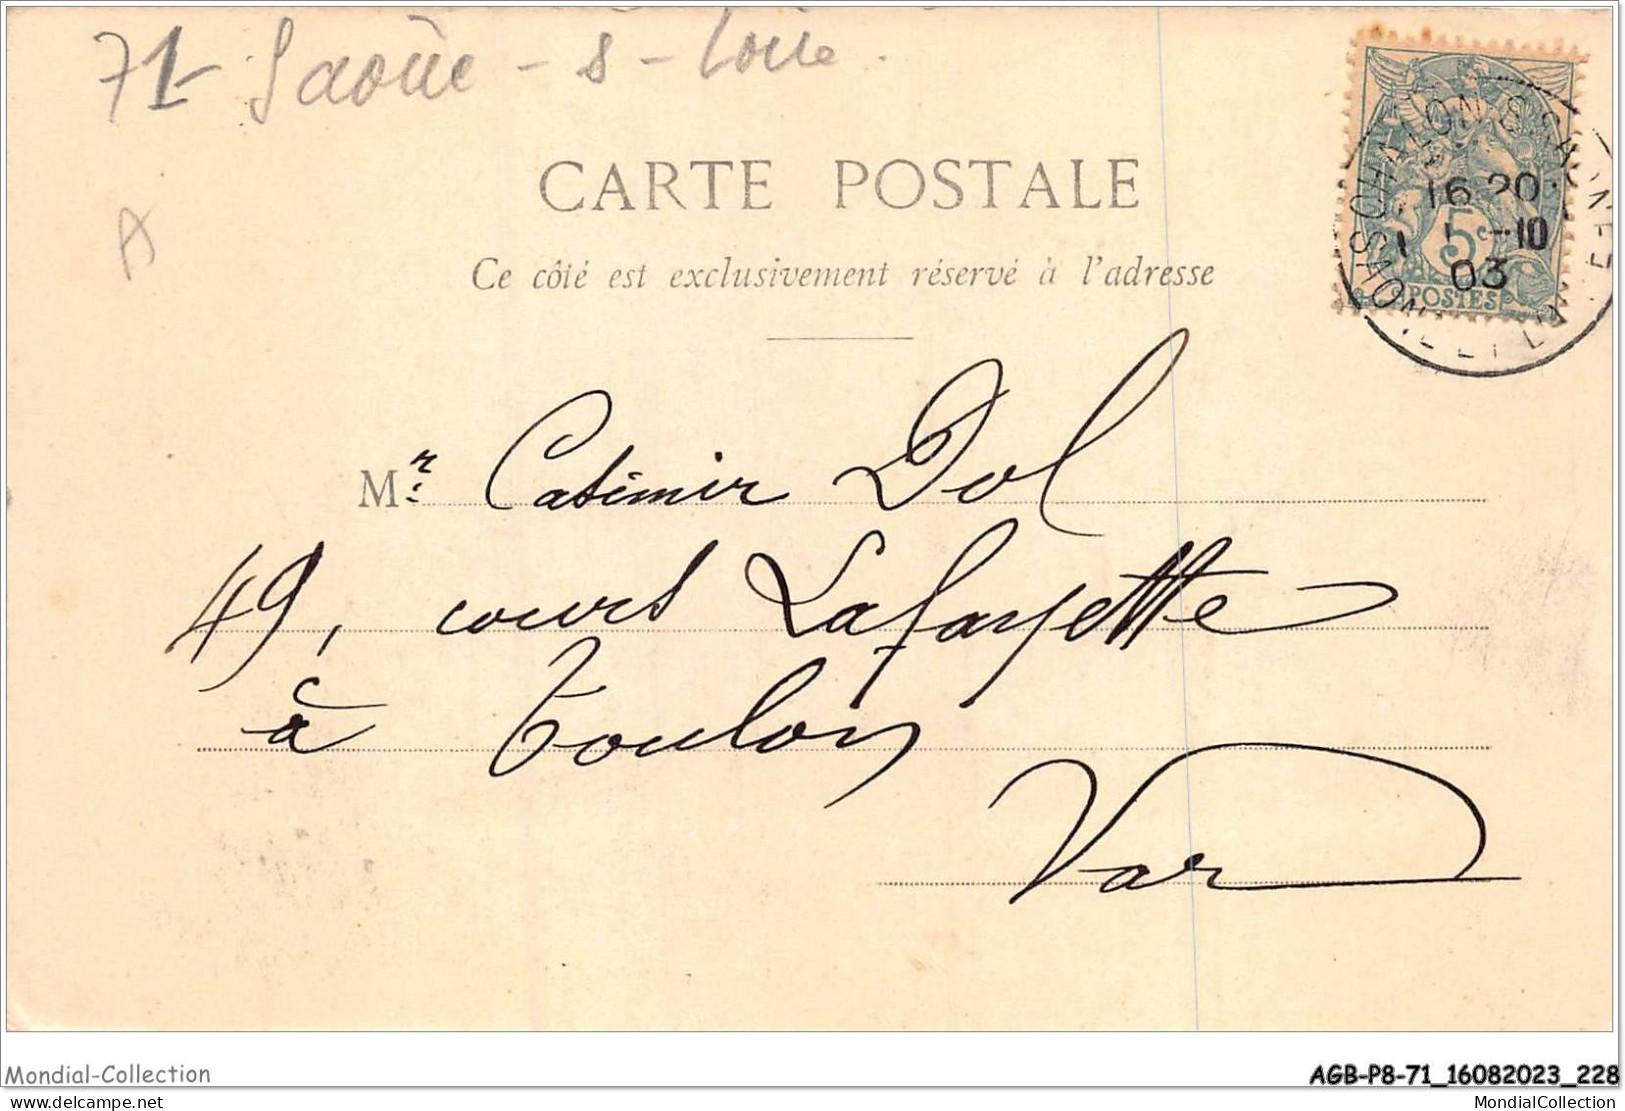 71 - Saône - s - Loire.
CARTE POSTALE
Ce côté est exclusivement réservé à l'adresse
CHALON S SAONE
SAONE ET LOIRE
16 20
1 -10
03
5c
POSTES
A
Mr. Casimir Dol
49, cours Lafayette
à Toulon
Var
Mondial-Collection
AGB-P8-71_16082023_228
www.delcampe.net
MondialCollection